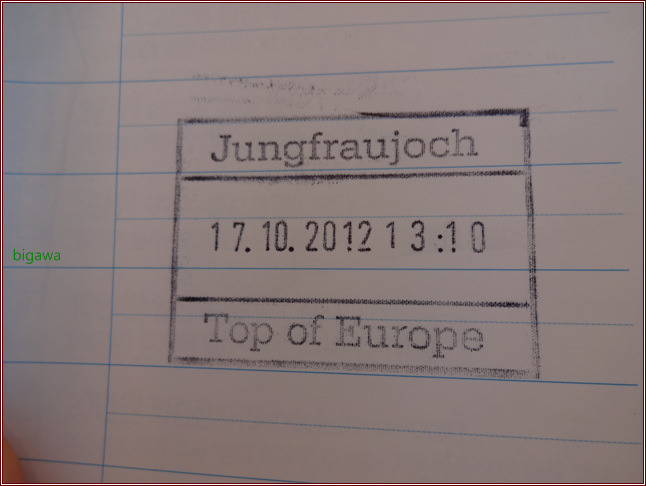 Jungfraujoch
17.10.2012 13:10
bigawa
Top of Europe